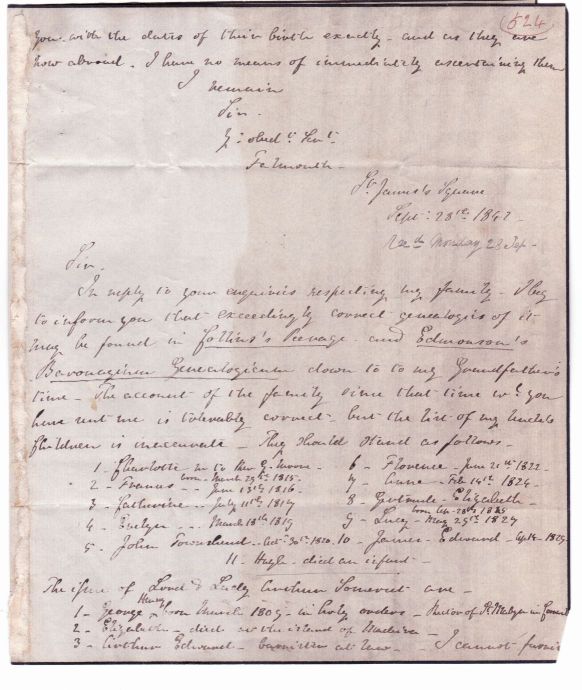 524
you with the dates of their birth exactly - and as they are
now abroad. I have no means of immediately ascertaining them
I remain
Sir.
Yr obedt Servt.
Falmouth -
St James's Square
Sept: 28th 1842 -
Monday 28 Sep -
Sir.
In reply to your enquiries respecting my family - I beg
to inform you that exceedingly correct genealogies of it
may be found in Collins's Peerage - and Edmonson's
Baronagium Genealogicum down to to my Grandfather's
time - The account of the family since that time wh. you
have sent me is tolerably correct - but the list of my Uncle's
Children is inaccurate - They should stand as follows -
1 - Charlotte m to Mr G. Moore -
2 - Frances - born March 29th 1815 -
3 - Catherine - June 13th 1816 - July 11th 1817
4 - Evelyn - March 18th 1819
5 - John Townshend - Octr 30th 1820.
6 - Florence - June 21st 1822 -
7 - Anne - Feb 14th 1824 -
8 - Gertrude - Elizabeth -
9 - Lucy - May 29th 1827
10 - James - Edward -
11 - Hugh - died an infant -
The issue of Lord & Lady Arthur Somerset are -
1 - George Henry born March 1809 - in holy orders - Rector of St Mabyn in Cornwall
2 - Elizabeth - died in the island of Madeira -
3 - Arthur Edward - barrister at law - I cannot furnish